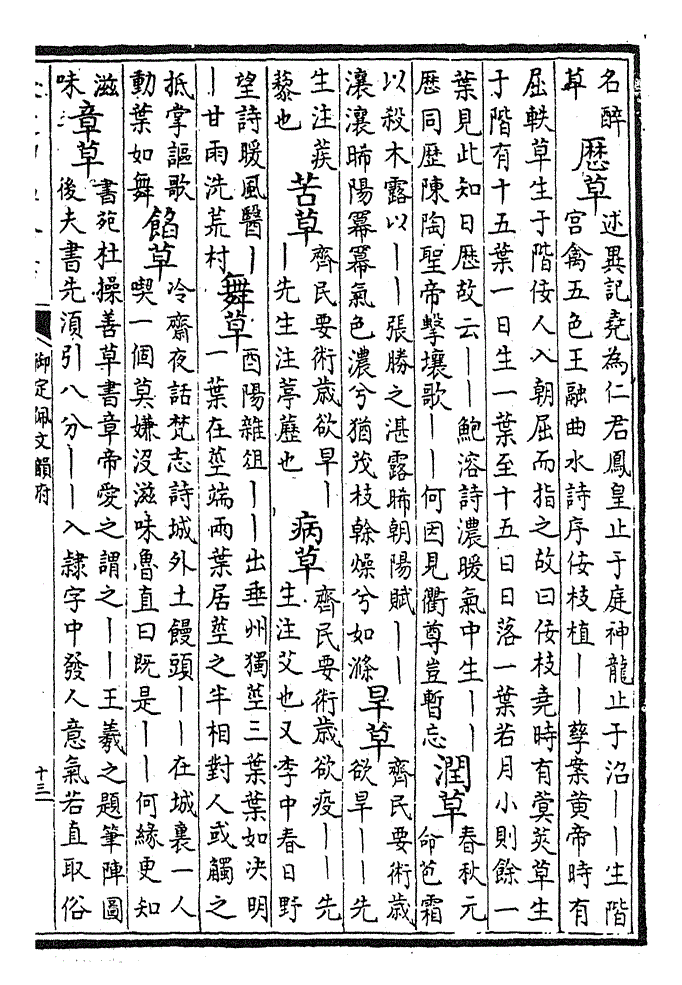 名醉草 歷草 述異記堯為仁君鳳皇止于庭神龍止于沼——生階宫禽五色王融曲水詩序佞枝植——孽案黄帝時有
屈軼草生于階佞人入朝屈而指之故曰佞枝堯時有蓂莢草生于階有十五葉一日生一葉至十五日日落一葉若月小則餘一
葉見此知日歷故云——鮑溶詩濃暖氣中生——歷同歷陳陶聖帝擊壤歌——何因見衢尊豈暫忘 潤草 春秋元命苞霜
以殺木露以——張勝之湛露晞朝陽賦——瀼瀼晞陽羃羃氣色濃兮猶茂枝榦燥兮如滌 旱草 齊民要術歲欲旱——先
生注蒺藜也 苦草 齊民要術歲欲旱——先生注葶藶也 病草 齊民要術歲欲疫——先生注艾也又李中春日野
望詩暖風醫——甘雨洗荒村 舞草 酉陽雜俎——出垂州獨莖三葉葉如決明一葉在莖端兩葉居莖之半相對人或觸之
抵掌謳歌動葉如舞 餡草 冷齋夜話梵志詩城外土饅頭——在城裏一人喫一個莫嫌没滋味魯直曰既是——何緣更知
滋味 章草 書苑杜操善草書章帝愛之謂之——王羲之題筆陣圖後夫書先須引八分——入隸字中發人意氣若直取俗
御定佩文韻府
十三